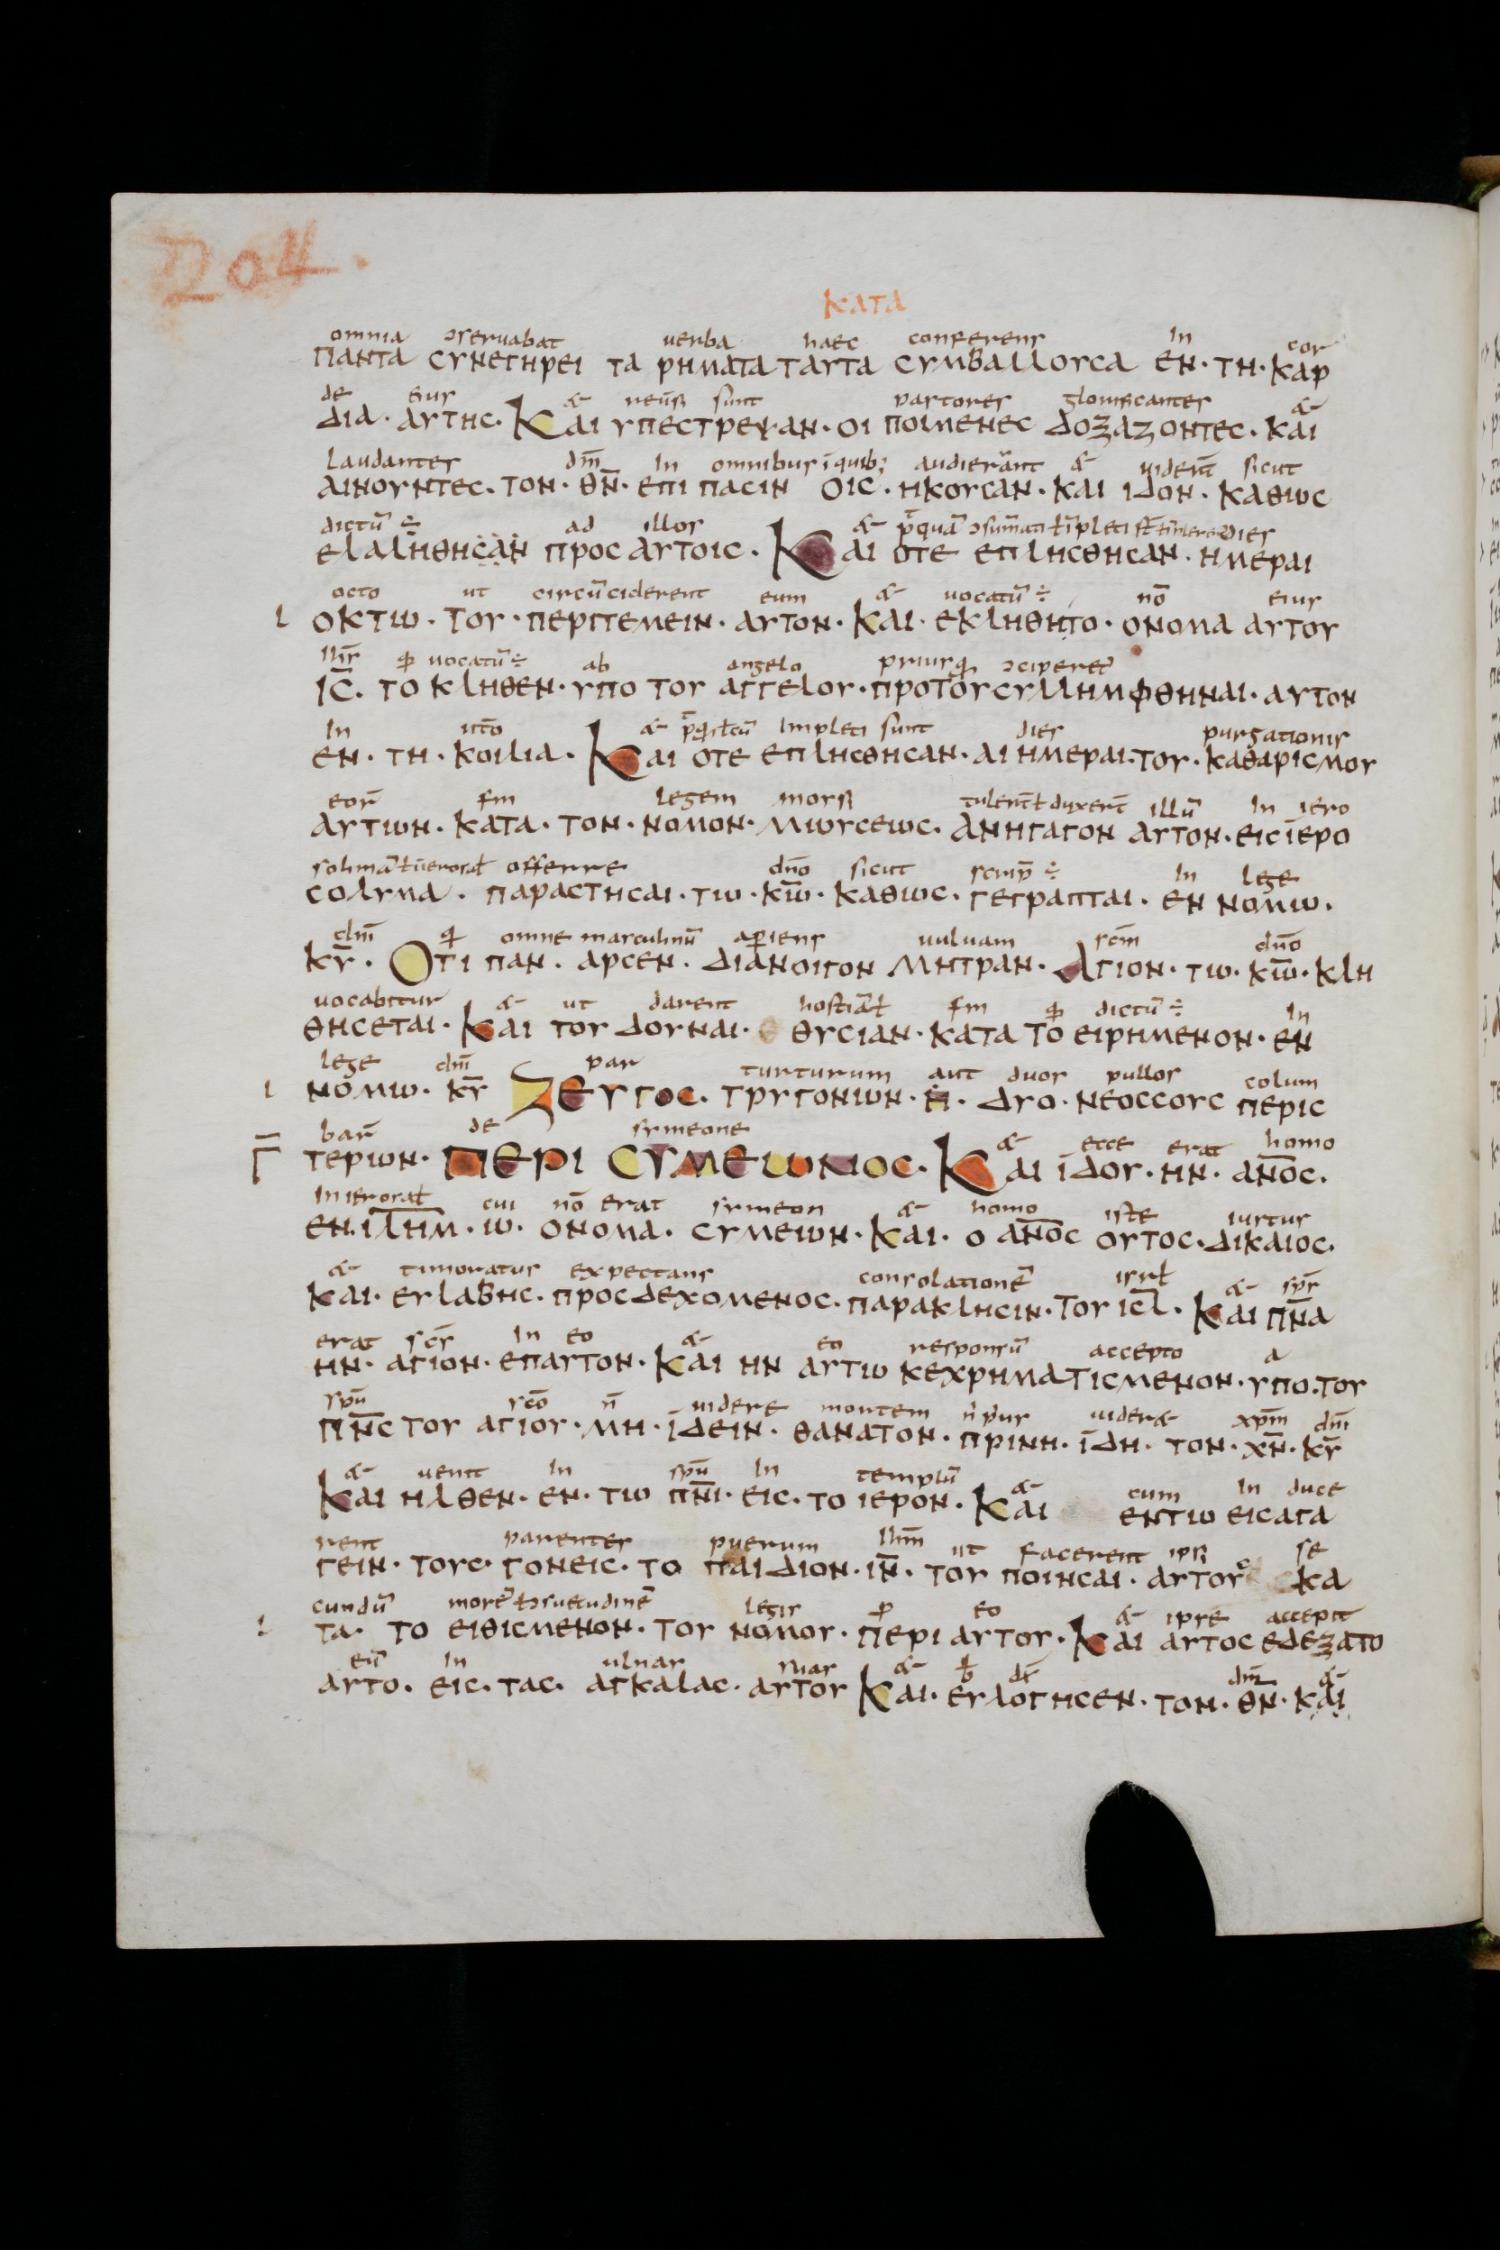 204.
ΚΑΤΑ
omnia ɔseruabat uerba haec conferens In cor
ΠΑΝΤΑ CΥΝΕΤΗΡΕΙ ΤΑ ΡΗΜΑΤΑ ΤΑΥΤΑ CΥΜΒΑΛΛΟΥCΑ ΕΝ· ΤΗ· ΚΑΡ
de eius & sunt pastores glorificantes &
ΔΙΑ· ΑΥΤΗC· ΚΑΙ ΥΠΕCΤΡΕΨΑΝ· ΟΙ ΠΟΙΜΕΝΕC ΔΟΞΑΖΟΝΤΕC· ΚΑΙ
laudantes dm̄ In omnibus i quib; audierant & uidert̄ sicut
ΑΙΝΟΥΝΤΕC· ΤΟΝ· Θ̅Ν̅· ΕΠΙ ΠΑCΙΝ ΟΙC· ΗΚΟΥCΑΝ· ΚΑΙ ΙΔΟΝ· ΚΑΘΩC
dictū ÷ ad illos & dies
ΕΛΑΛΗΘΗCΑΝ ΠΡΟC ΑΥΤΟΙC· ΚΑΙ ΟΤΕ ΕΠΛΗCΘΗCΑΝ· ΗΜΕΡΑΙ
octo ut circūciderent eum & uocatū ÷ nō eius
ΟΚΤΩ· ΤΟΥ· ΠΕΡΙΤΕΜΕΙΝ· ΑΥΤΟΝ· ΚΑΙ· ΕΚΛΗΘΗΤΟ· ΟΝΟΜΑ ΑΥΤΟΥ
Ih̄s uocatū ÷ ab angelo priusq̄ ɔciperet
Ι̅C̅· ΤΟ ΚΛΗΘΕΝ· ΥΠΟ ΤΟΥ ΑΓΓΕΛΟΥ· ΠΡΟΤΟΥ CΥΛΛΗΜΦΘΗΝΑΙ· ΑΥΤΟΝ
In utō & Impleti sunt dies purgationis
ΕΝ· ΤΗ· ΚΟΙΛΙΑ· ΚΑΙ ΟΤΕ ΕΠΛΗCΘΗCΑΝ· ΑΙ ΗΜΕΡΑΙ· ΤΟΥ· ΚΑΘΑΡΙCΜΟΥ
eor̄ sm legem tulert̄ ł duxert̄ illū In iero
ΑΥΤΩΝ· ΚΑΤΑ· ΤΟΝ· ΝΟΜΟΝ· ΜΩΥCΕΩC· ΑΝΗΓΑΓΟΝ ΑΥΤΟΝ· ΕΙC ΙΕΡΟ
offerre dn̄o sicut ÷ In lege
CΟΛΥΜΑ· ΠΑΡΑCΤΗCΑΙ· ΤΩ· Κ̅Ω̅· ΚΑΘΩC· ΓΕΓΡΑΠΤΑΙ· ΕΝ ΝΟΜΩ·
dn̄i omne masculinū apiens uuluam scm̄ dn̄o
Κ̅Υ̅· ΟΤΙ ΠΑΝ· ΑΡCΕΝ· ΔΙΑΝΟΙΓΟΝ ΜΗΤΡΑΝ· ΑΓΙΟΝ· ΤΩ· Κ̅Ω̅· ΚΛΗ
uocabitur & ut darent hostiā ł sm dictū ÷ In
ΘΗCΕΤΑΙ· ΚΑΙ ΤΟΥ ΔΟΥΝΑΙ· ΘΥCΙΑΝ· ΚΑΤΑ ΤΟ ΕΙΡΗΜΕΝΟΝ· ΕΝ
lege dn̄i par turturum aut duos pullos colum
ΝΟΜΩ· Κ̅Υ̅ ΖΕΥΓΟC· ΤΡΥΓΟΝΙΩΝ· Η· ΔΥΟ· ΝΕΟCCΟΥC ΠΕΡΙC
bar̄ de symeone & ecce erat homo
Γ̅ ΤΕΡΙΩΝ· ΠΕΡΙ CΥΜΕΩΝΟC· ΚΑΙ ΙΔΟΥ· ΗΝ· ΑΝ̅Ο̅C·
cui nō erat symeon & homo iste iustus
ΕΝ. ΙΛ̅Η̅Μ· Ω· ΟΝΟΜΑ· CΥΜΕΩΝ· ΚΑΙ· Ο ΑΝ̅Ο̅C ΟΥΤΟC· ΔΙΚΑΙΟC·
& timoratus expectans consolationē isrł & sps̄
ΚΑΙ· ΕΥΛΑΒΗC· ΠΡΟCΔΕΧΟΜΕΝΟC· ΠΑΡΑΚΛΗCΙΝ· ΤΟΥ ΙC̅Λ̅· ΚΑΙ Π̅Ν̅Α
erat scs̄ In eo & eo responsū accepto a
ΗΝ· ΑΓΙΟΝ· ΕΠΑΥΤΟΝ· ΚΑΙ ΗΝ ΑΥΤΩ ΚΕΧΡΗΜΑΤΙCΜΕΝΟΝ· ΥΠΟ· ΤΟΥ
spū scō n̄ uidere mortem uider& xpm̄ dn̄i
Π̅Ν̅C ΤΟΥ ΑΓΙΟΥ· ΜΗ· ΙΔΕΙΝ· ΘΑΝΑΤΟΝ· ΠΡΙΝΗ· ΙΔΗ· ΤΟΝ· Χ̅Ν̅· Κ̅Υ̅
& uenit In spū In templū & cum In duce
ΚΑΙ ΗΛΘΕΝ· ΕΝ· ΤΩ Π̅Ν̅Ι· ΕΙC· ΤΟ ΙΕΡΟΝ· ΚΑΙ ΕΝΤΩ ΕΙCΑΓΑ
rent parentes puerum Ihm̄ ut facerent se
ΓΕΙΝ· ΤΟΥC· ΓΟΝΕΙC· ΤΟ ΠΑΙΔΙΟΝ· Ι̅Ν̅· ΤΟΥ ΠΟΙΗCΑΙ· ΑΥΤΟΥC ΚΑ
cundū morē ł ɔsuetudinē legis eo & ipse accepit
ΤΑ· ΤΟ ΕΙΘΙCΜΕΝΟΝ· ΤΟΥ ΝΟΜΟΥ· ΠΕΡΙ ΑΥΤΟΥ· ΚΑΙ ΑΥΤΟC ΕΔΕΞΑΤΟ
eū In ulnas suas & dm̄ &
ΑΥΤΟ· ΕΙC· ΤΑC· ΑΓΚΑΛΑC· ΑΥΤΟΥ ΚΑΙ· ΕΥΛΟΓΗCΕΝ· ΤΟΝ· Θ̅Ν̅· ΚΑΙ